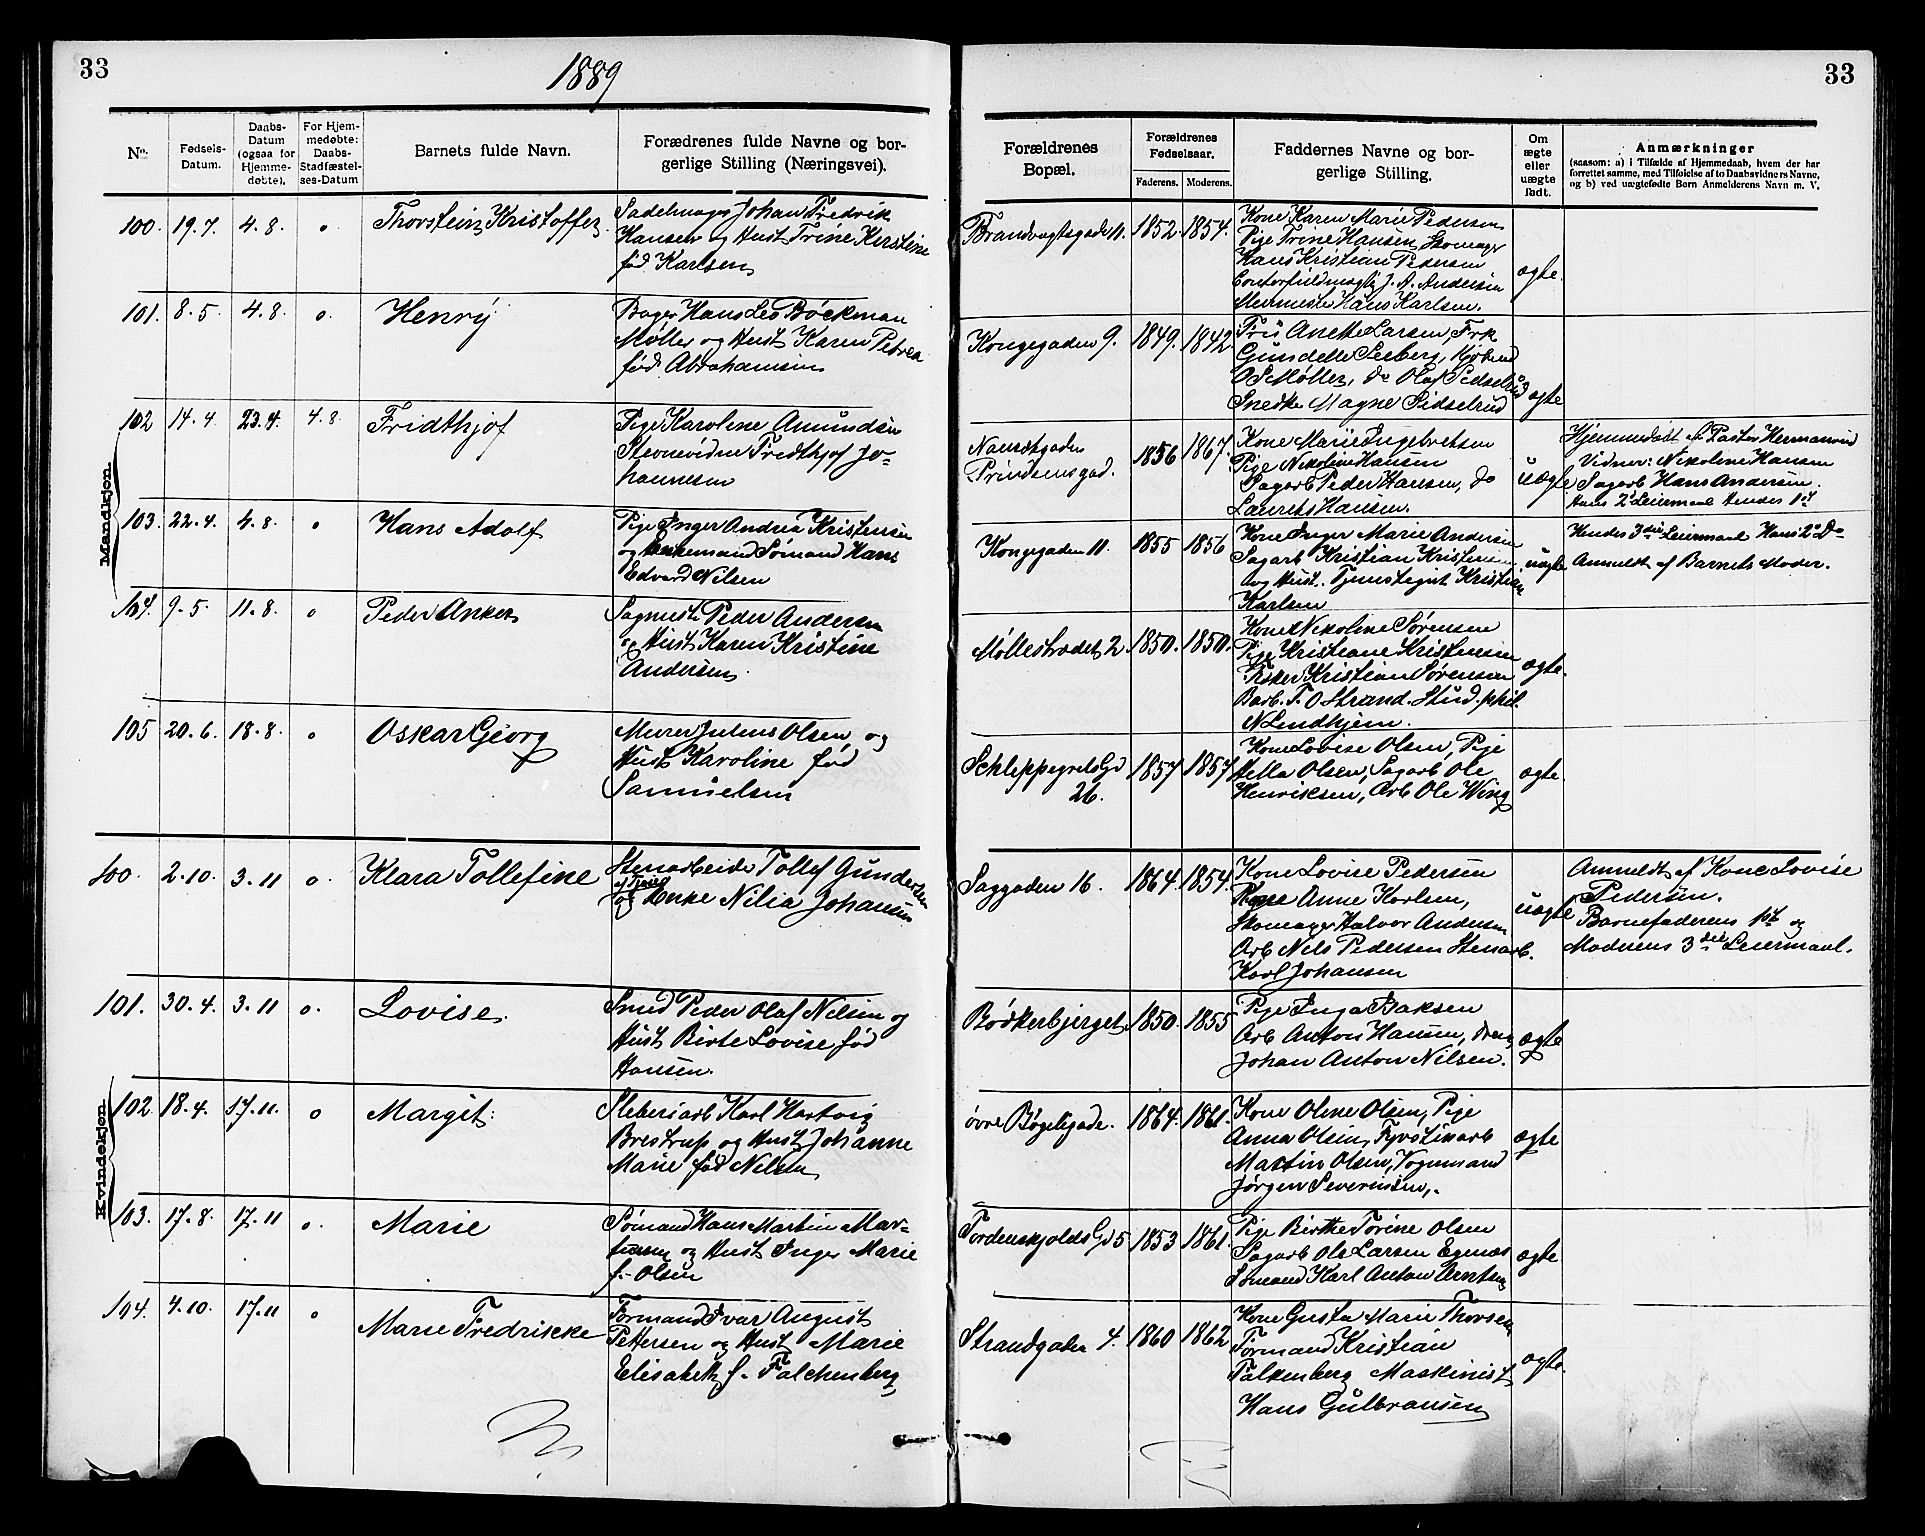 33
1889
33
No.
Fødsels-
Datum.
Daabs-
Datum
(ogsaa for
Hjemme-
døbte).
For Hjem-
medøbte:
Daabs-
Stadfæstel-
ses-Datum
Barnets fulde Navn.
Forædrenes fulde Navne og bor-
gerlige Stilling (Næringsvei).
Forældrenes
Bopæl.
Forældrenes
Fødselsaar.
Faderens.
Moderens.
Faddernes Navne og bor-
gerlige Stilling.
Om
ægte
eller
uægte
født.
Anmærkninger
(saasom: a) i Tilfælde af Hjemmedaab, hvem der har
forrettet samme, med Tilføielse af to Daabsvidners Navne,
og b) ved uægtefødte Børn Anmelderens Navn m. V.
Mandkjøn
100. 19.7. 4.8. o Thorstein Kristoffer
Sadelmager Johan Fredrik
Hansen og Hust Trine Kirstine
fød Karlsen
Brandvagtsgade 11. 1852 1854.
Kone Karen Marie Pedersen
Pige Trine Hansen Skomager
Hans Kristian Pedersen
Contorfuldmægtig J. A. Andersen
Hans Karlsen.
ægte.
101. 8.5. 4.8. o. Henry
Bager Hans Leo Bøckman
Møller og Hust Karen Petrea
fød Abrahamsen
Kongegaden 9. 1849. 1842.
Fru Anette Larsen, Frk
Gundelle Seeberg, Kjøbmd
O S Møller, do Olaf Pedselrud
Snedker Magne Pidselrud
ægte
102 14.4 23.4. 4.8. Fridthjof
Pige Karoline Amundsen
Stevnevidne Fridthjof Jo-
hannesen
Nansetgaden
Prindsensgad. 1856 1867.
Kone Marie Ingebretsen
Pige Nikoline Hansen
Sagarb Peder Hansen, do
Laurits Hansen.
uægte
Hjemmedøbt af Pastor Hermanrud
Vidner: Nikoline Hansen
Sagarb Hans Andersen.
Hans 2d Leiermaal Hendes 1st
103. 22.4. 4.8. o Hans Adolf
Pige Inger Andrea Kristensen
og Enkemand Sømand Hans
Edvard Nilsen
Kongegaden 11. 1855 1856
Kone Inger Marie Andersen
Sagarb Kristian Kristensen
og Hust. Tjenestegut Kristian
Karlsen
uægte
Hendes 3die Leiermaal Hans 2 Do
Anmeldt af Barnets Moder.
104. 9.5. 11.8. o Peder Anker
Sagmest Peder Andersen
og Hust Karen Kristine
Andersen.
Møllestrædet 2. 1850. 1850.
Kone Nikoline Sørensen
Pige Kristiane Kristensen
Fisker Kristian Sørensen
Barb. T. O Strand. Stud. phil.
N Lindhjem.
ægte.
105 20.6. 18.8. o Oskar Georg
Murer Julius Olsen, og
Hust Karoline fød
Samuelsen
Schleppegrels Gd
26. 1857 1857
Kone Lovise Olsen, Pige
Hella Olsen, Sagarb Ole
Henriksen, Arb Ole Wing
ægte.
Kvindekjøn
100. 2.10. 3.11 o. Klara Tollefine
Stenarbeider Tollef Gundersen
og Enke Nilia Johansen
Saggaden 16. 1864. 1854.
Kone Lovise Pedersen
Anne Karlsen,
Skomager Halvor Andersen
Arb Nels Pedersen Stenarb.
Karl Johansen
uægte
Anmeldt af Kone Lovise
Pedersen.
Barnefaderens 1st og
Moderens 3die Leiermaal.
101. 30.4. 3.11 o. Lovise.
Smed Peder Olaf Nilsen og
Hust Birte Lovise fød
Hansen.
Bødkerbjerget 1850. 1855
Pige Inga Isaksen
Arb Anton Hansen, Dreng
Johan Anton Nilsen.
ægte
102 18.4. 17.11. o Margit.
Sliberiarb Karl Hartvig
Brestrup og Hust Johanne
Marie fød Nilsen
øvre Bøgeligade. 1864. 1861.
Kone Oline Olsen, Pige
Anna Olsen, Fyrstikarb
Martin Olsen, Vognmand
Jørgen Severinsen,.
ægte
103. 17.8. 17.11 o. Marie
Sømand Hans Martin Mar-
tinsen og Hust Inger Marie
f. Olsen
Tordenskjolds Gd 5 1853 1861.
Pige Birthe Torine Olsen
Sagarb Ole Larsen Egenæs
Sømand Karl Anton Arntsen
ægte
104. 4.10. 17.11 o Marie Fredrikke
Formand Ivar August
Pettersen og Hust Marie
Elisabeth f. Falchenberg
Strandgaden 4. 1860 1862
Kone Gusta Marie Thorsen
Formand Kristian
Falkenberg Maskinist
Hans Gulbransen
ægte.